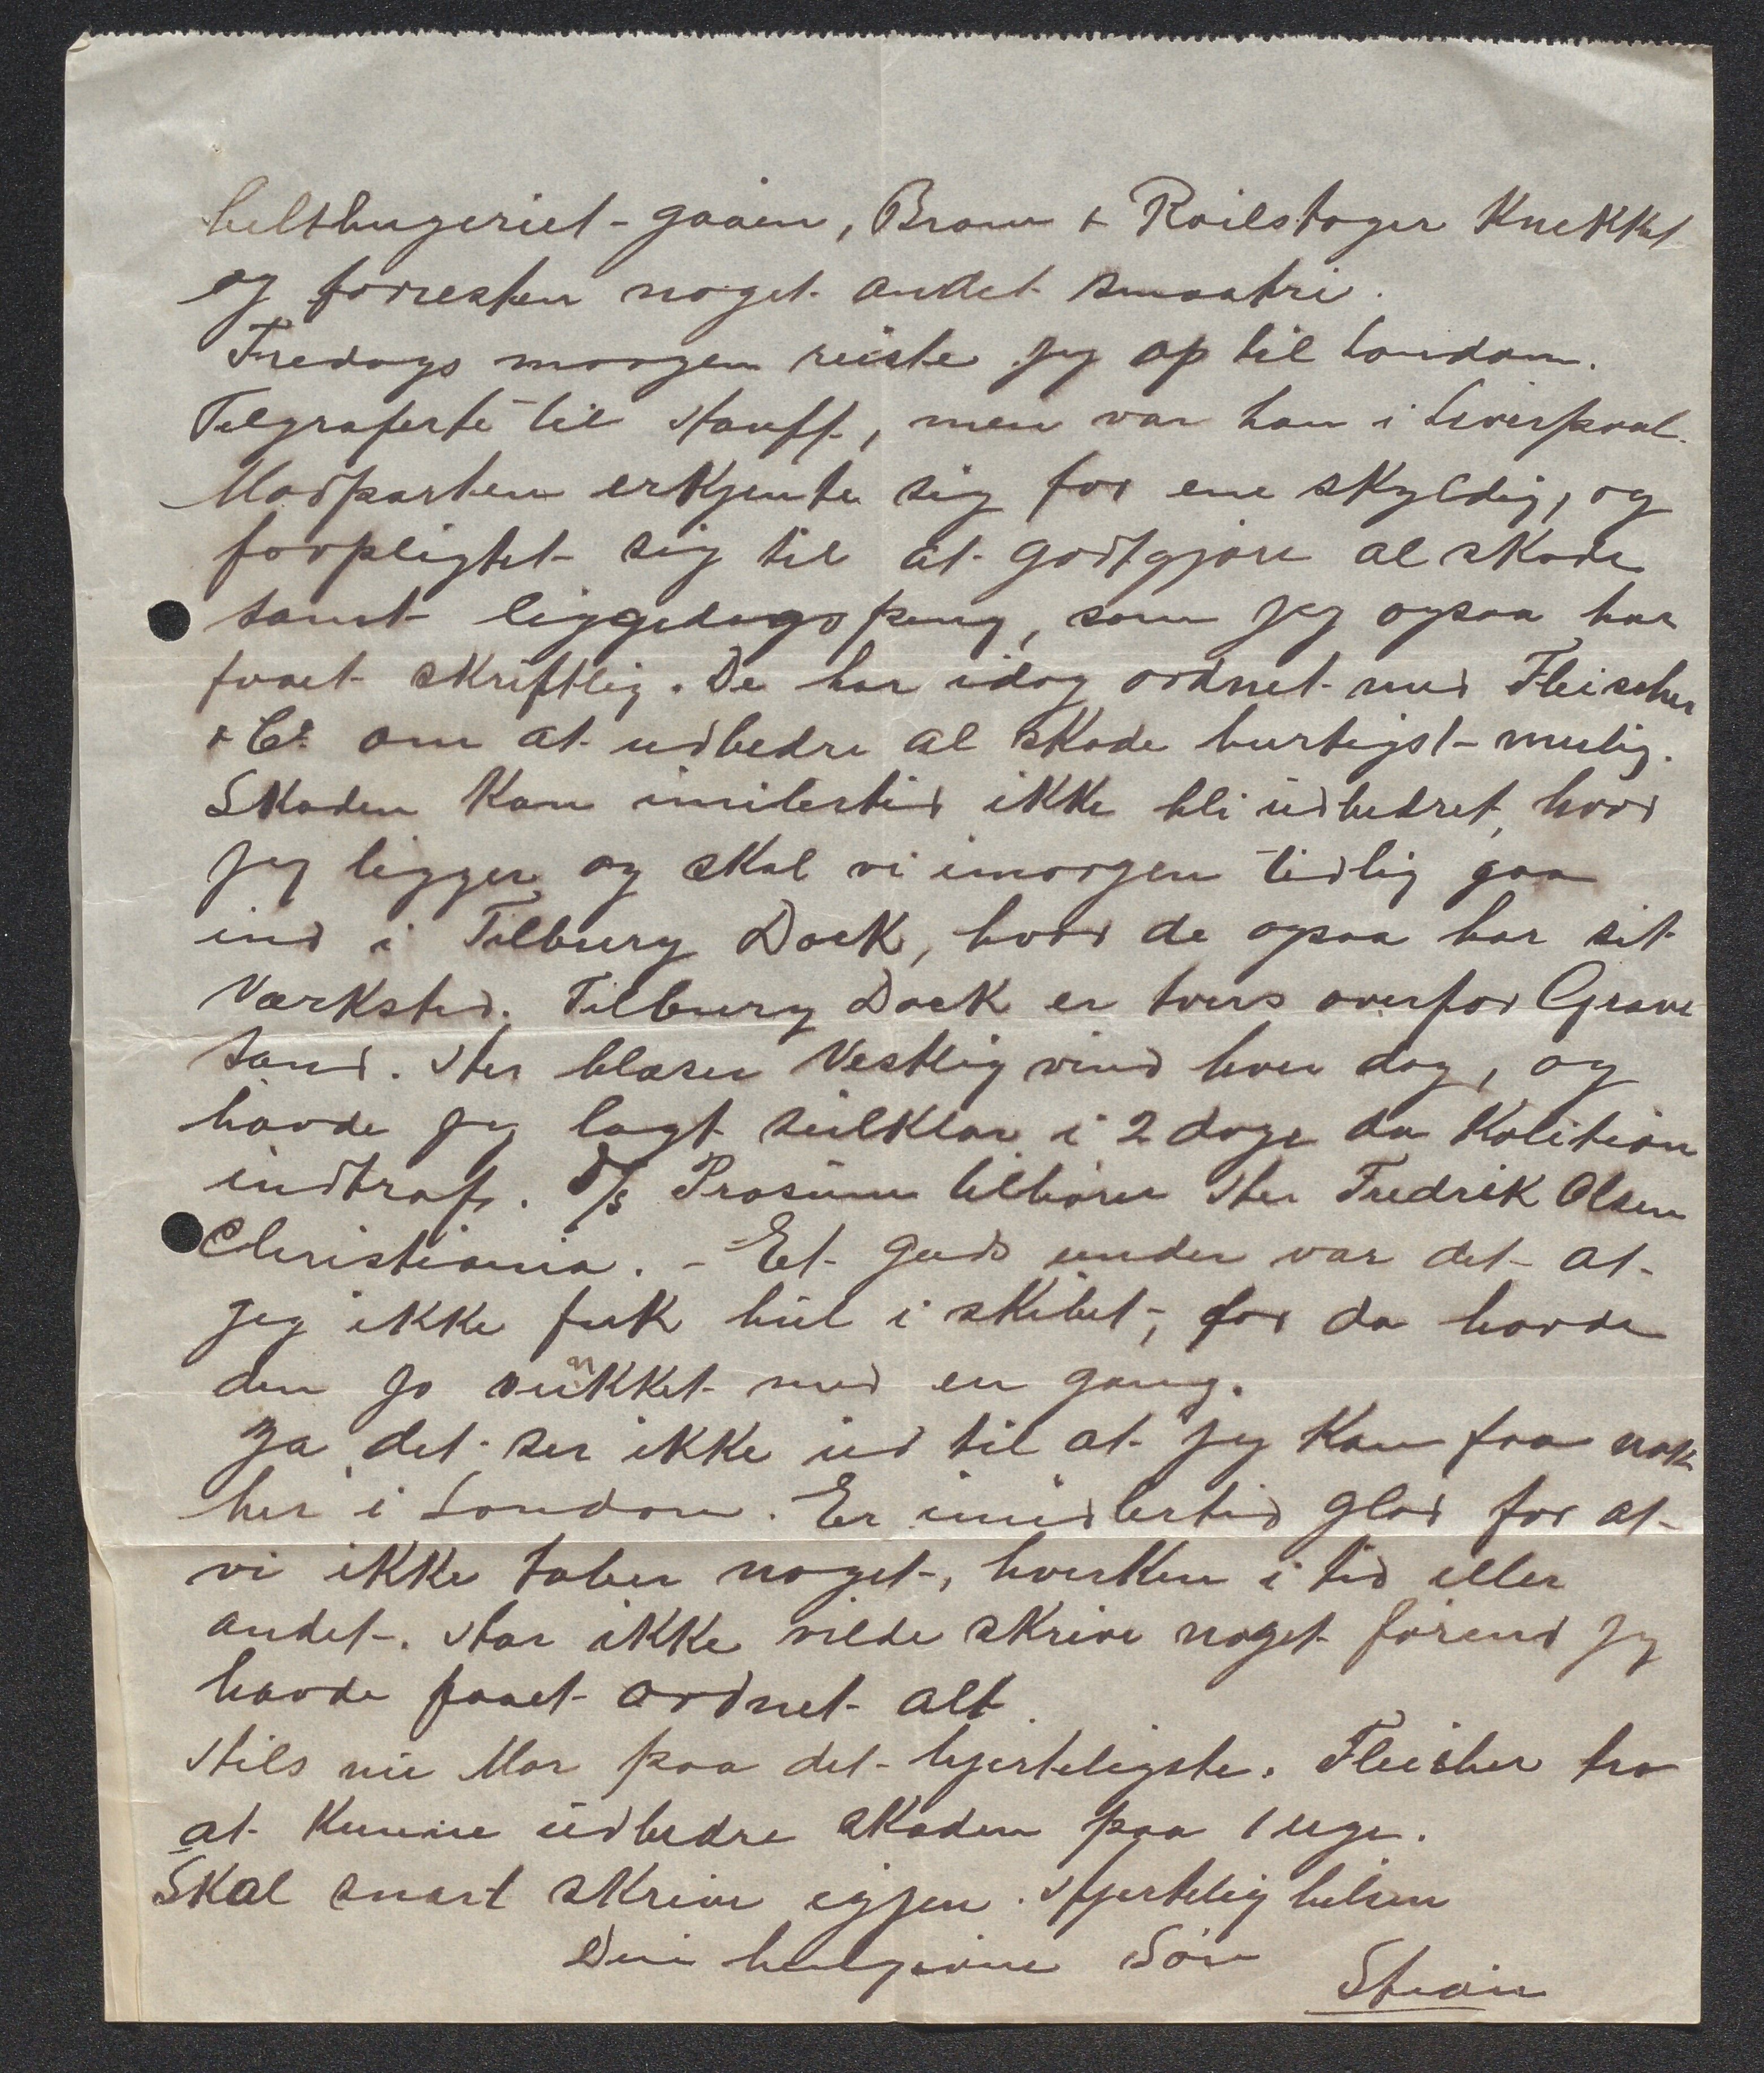 og forresten noget andet smaatri.
Fredags morgen reiste jeg op til London.
Telgraferte til Hauff, men var han i Liverpool.
Modparten erkjente sig for ene skyldig, og
forpligtet sig til at godtgjøre al skade
samt liggedagspeng, som jeg ogsaa har
faaet skriftlig. De har idag ordnet med Fleischer
& Co om at udbedre al skade hurtigst mulig.
Skaden kan imilertid ikke bli udbedret, hvor
jeg ligger og skal vi imorgen tidlig gaa
ind i Tilbury Dock, hvor de ogsaa har sit
Værksted. Tilbury Dock er tvers overfor Grave
sand. Her blæser Vestlig vind hver dag, og
havde jeg lagt seilklar i 2 dage da Kolition
indtraf. D/S Prosum tilhører Her Fredrik Olsen
Christiania. - Et guds under var det at
jeg ikke fik hul i skibet, for da havde
den jo sunkket med en gang.
Ja det ser ikke ud til at jeg kan faa nok
her i London. Er imidlertid glad for at
vi ikke taber noget, hverken i tid eller
andet. Har ikke vilde skrive noget førend jeg
havde faaet ordnet alt.
Hils nu Mor paa det hjerteligste. Fleisher tro
at kunne udbedre skaden paa 1 uge.
Skal snart skrive igjen. Hjertelig hilsen
Din hengivne Søn